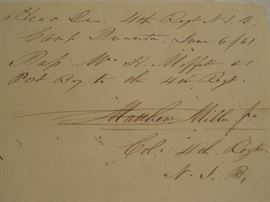 Head Qrs. 4th Regt N.J.B.
Camp Princeton June 6/61
Pass Mr. H. Moffett as
Post Boy to the 4th Regt.
Matthew Miller Jr
Col. 4th Regt
N.J.B.